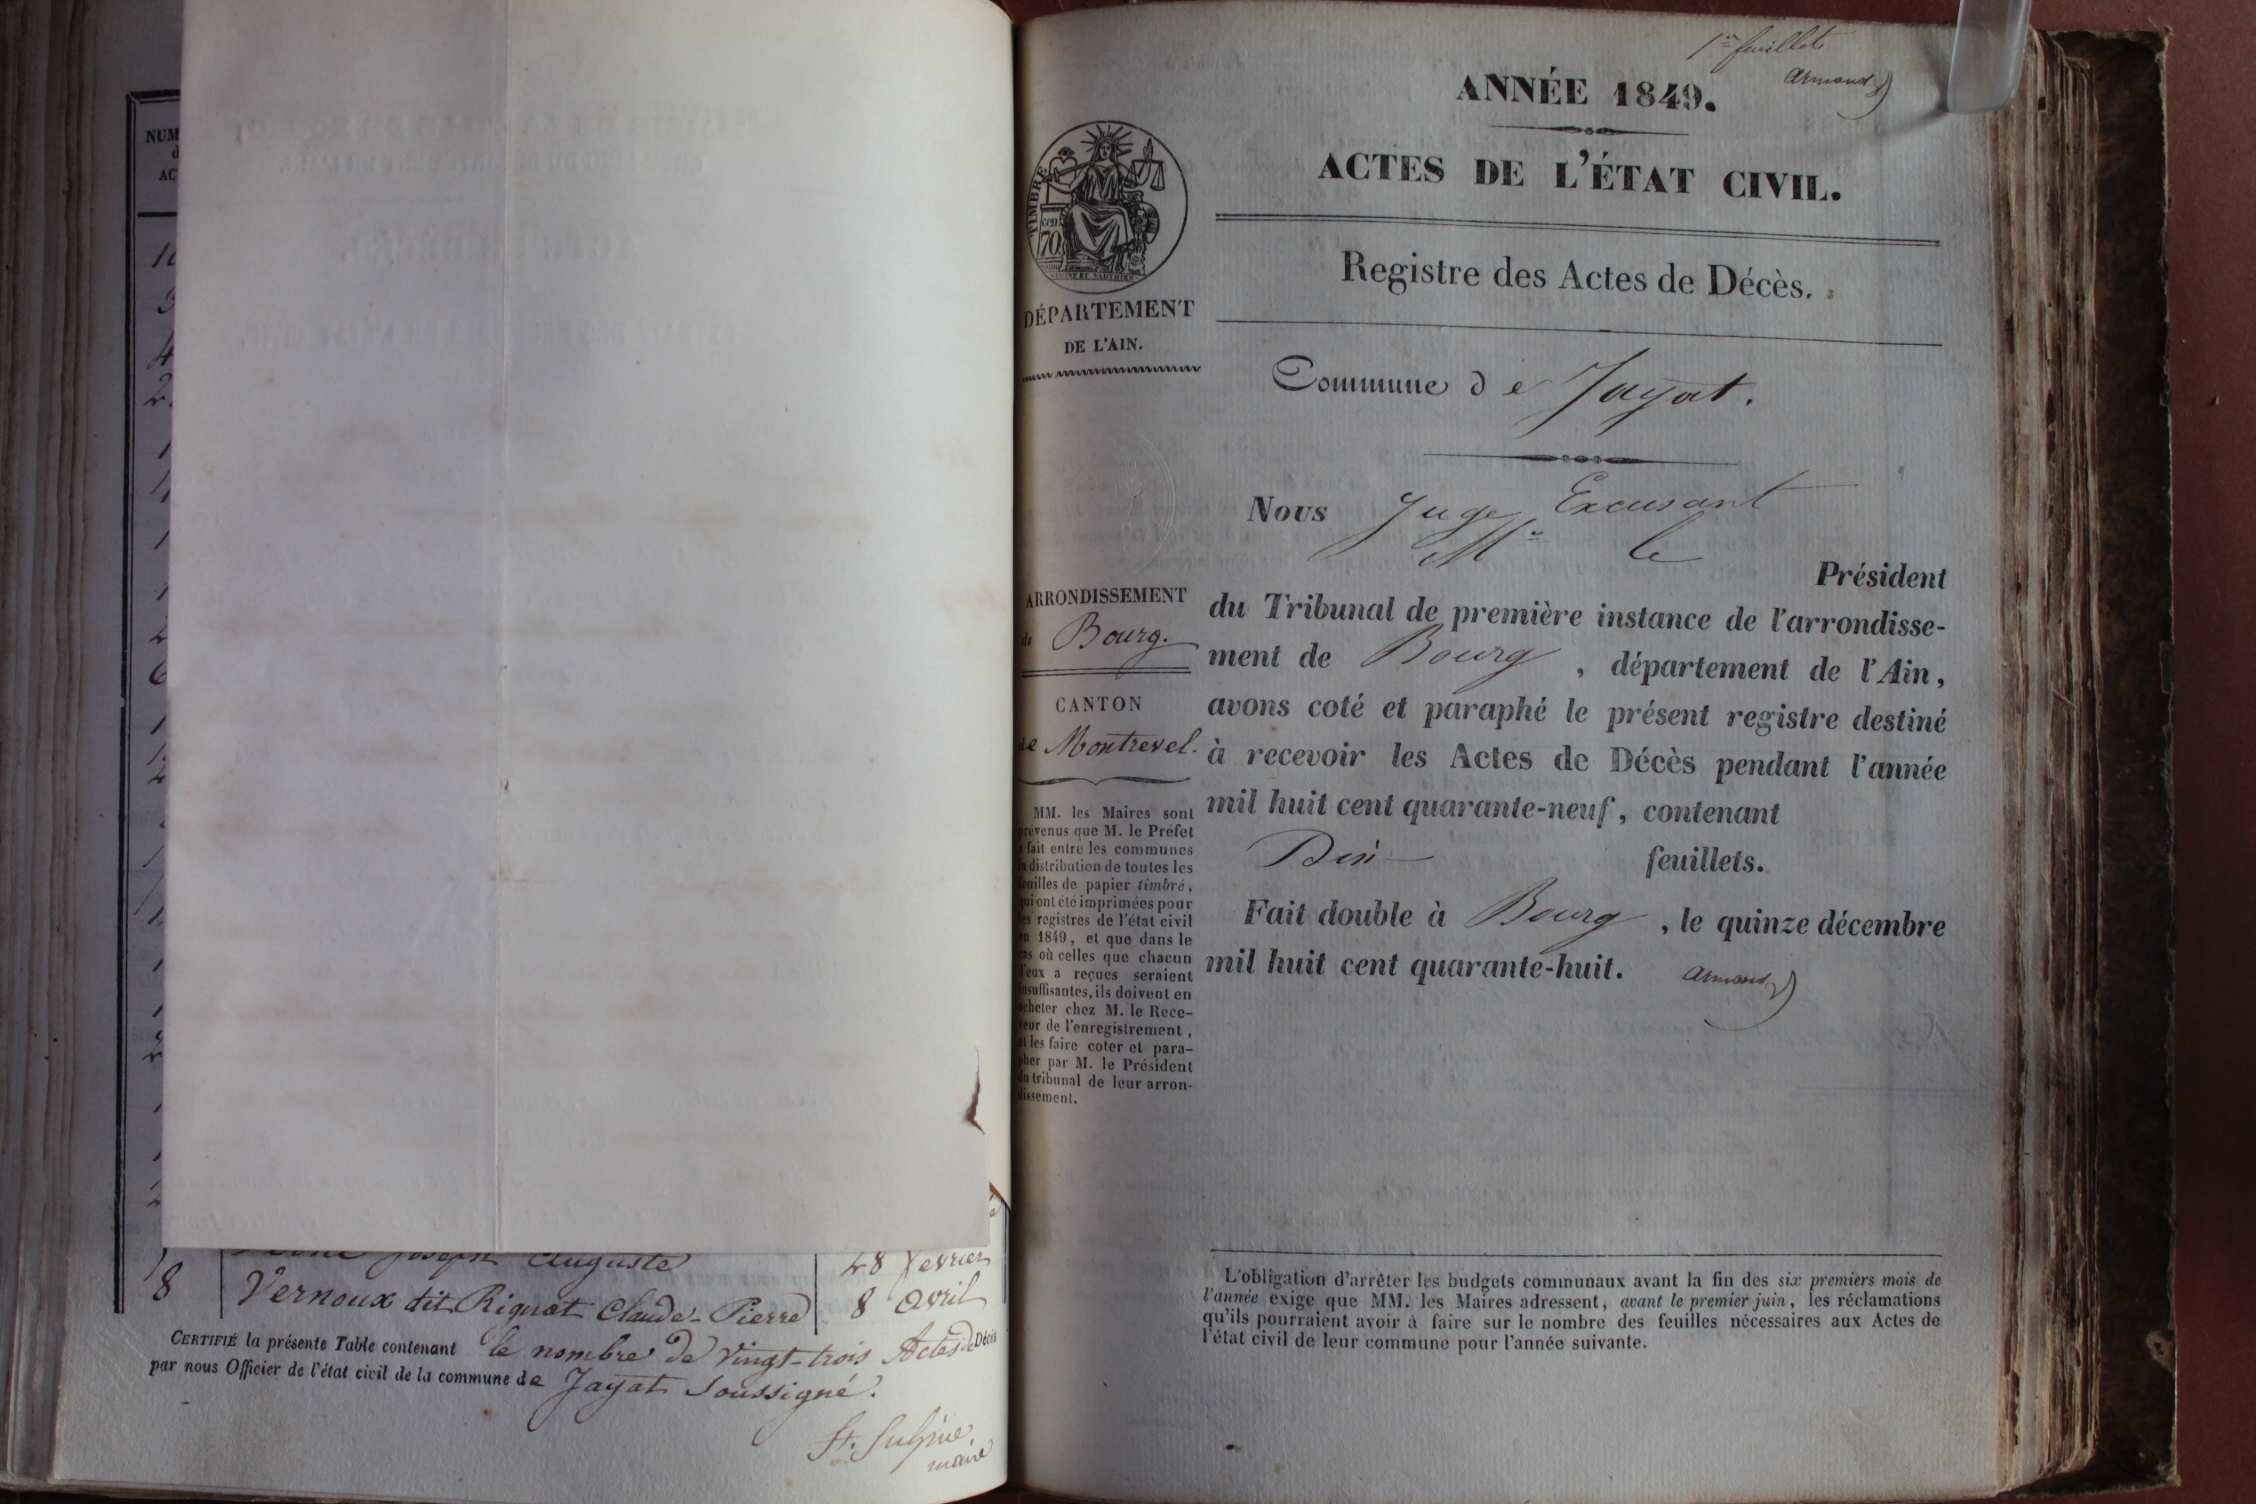 NUM
d
AC
8
Joseph Auguste
28 février
Vernoux dit Rignat Claude-Pierre
8 avril
CERTIFIÉ la présente Table contenant le nombre de vingt-trois Actes de Décès
par nous Officier de l'état civil de la commune de Jayat soussigné.
maire
1er feuillet
Armand
ANNÉE 1849.
ACTES DE L'ÉTAT CIVIL.
TIMBRE
70
Registre des Actes de Décès.
DÉPARTEMENT
DE L'AIN.
Commune de Jayat.
Nous Juge Excusant
Mr le
Président
du Tribunal de première instance de l'arrondisse-
ment de Bourg, département de l'Ain,
avons coté et paraphé le présent registre destiné
à recevoir les Actes de Décès pendant l'année
mil huit cent quarante-neuf, contenant
Dix feuillets.
Fait double à Bourg, le quinze décembre
mil huit cent quarante-huit.
Armand
ARRONDISSEMENT
de Bourg.
CANTON
de Montrevel.
MM. les Maires sont
prévenus que M. le Préfet
a fait entre les communes
la distribution de toutes les
feuilles de papier timbré,
qui ont été imprimées pour
les registres de l'état civil
en 1849, et que dans le
cas où celles que chacun
d'eux a reçues seraient
insuffisantes, ils doivent en
acheter chez M. le Rece-
veur de l'enregistrement,
et les faire coter et para-
pher par M. le Président
du tribunal de leur arron-
dissement.
L'obligation d'arrêter les budgets communaux avant la fin des six premiers mois de
l'année exige que MM. les Maires adressent, avant le premier juin, les réclamations
qu'ils pourraient avoir à faire sur le nombre des feuilles nécessaires aux Actes de
l'état civil de leur commune pour l'année suivante.